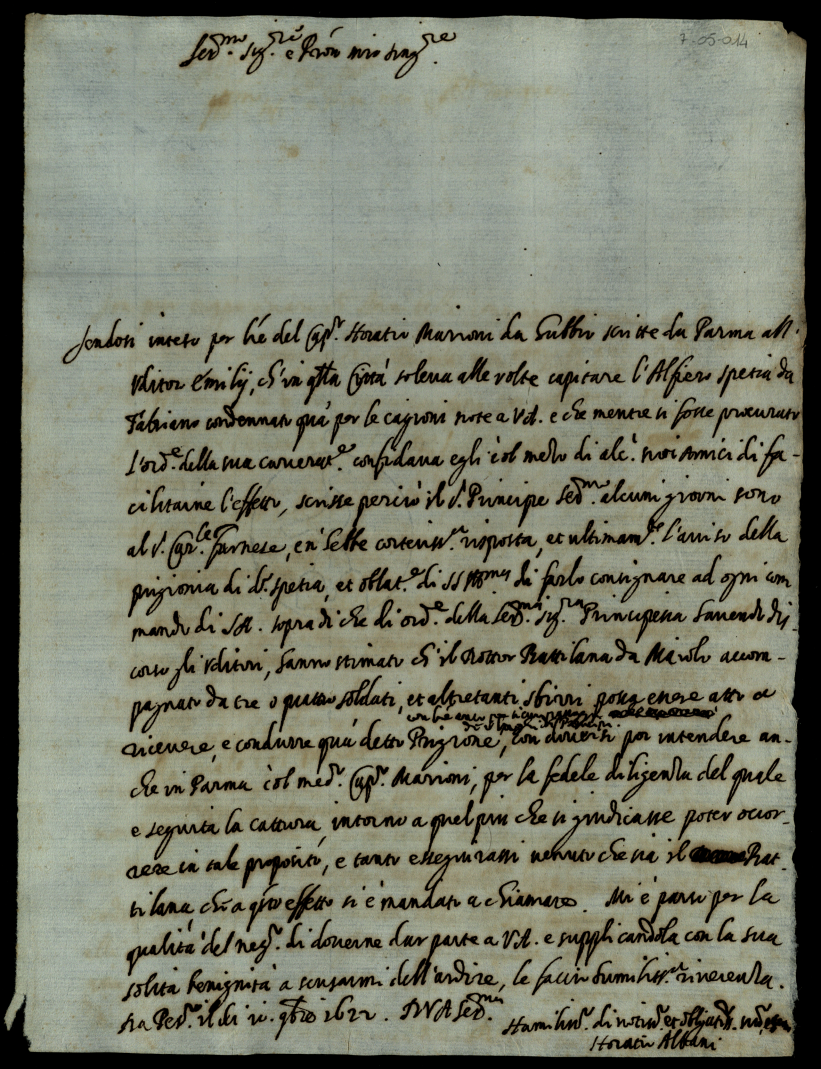 Ser.mo Sig.re e Pron mio sing.re
7-05-014
Sendosi inteso per l're del Cap.r Horatio Marioni da Gubbio scritte da Parma all'
Uditor Emilij, ch'in q.lla Città soleva alle volte capitare l'Alfiero Spetia da
Fabriano condennato quà per le cagioni note a V.A. e che mentre si fosse procurato
l'ord.e della sua carcerat.e confidava egli col mezo di alc.i suoi Amici di fa-
cilitarne l'effetto, scrisse perciò il S.r Principe Ser.mo alcuni giorni sono
al S.r Car.le Farnese, e n'hebbe cortesiss.a risposta, et ultimam.te l'aviso della
prigionia di d.o Spetia, et oblat.e di SS Ill.ma di farlo consignare ad ogni com
mando di S.A. sopra di che di ord.e della Ser.ma Sig.ra Principessa havendo dis-
corso gli Uditori, hanno stimato ch'il Dottor Battilana da Maiolo accom-
pagnato da tre o quattro soldati, et altretanti sbirri possa essere atto a
ricevere, e condurre quà detto Prigione, con doversi poi intendere an-
che in Parma col med.o Cap.r Marioni, per la fedele diligenza del quale
e seguita la cattura, intorno a quel più che si giudicasse poter occor-
rere in tale proposito, e tanto esseguirassi venuto che sia il Bat-
tilana, che a q.sto effetto si è mandato a chiamare. Mi è parso per la
qualità del neg.o di doverne dar parte a V.A. e supplicandola con la sua
solita benignità a scusarmi dell'ardire, le faccio humiliss.a riverenza.
Da Pes.o il di 10. 9bre 1622. D V A Ser.ma
Humiliss.o divotiss.o et obligatiss.o
Horatio Albani